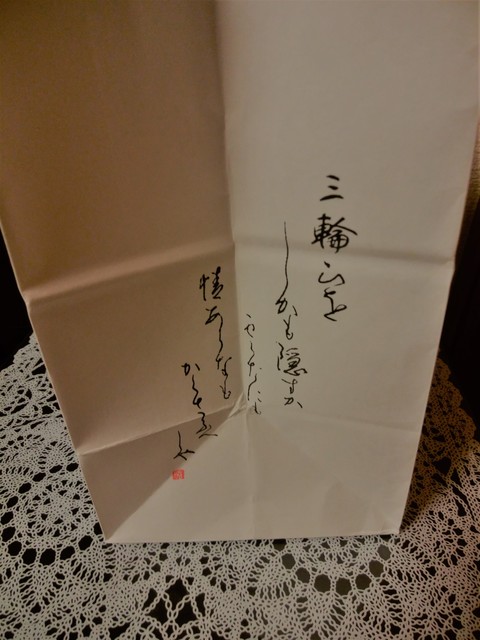 三輪山を
しかも隠すか
雲だにも
情あらなも
かくさふべ
しや